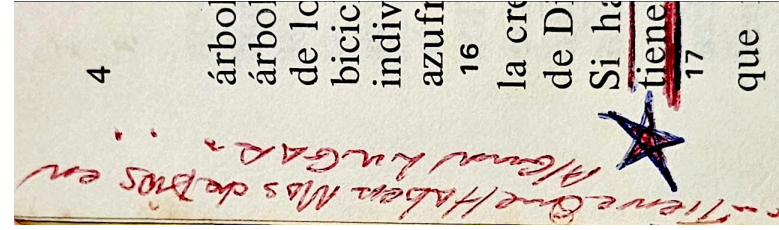 4
árbol
árbol
de lo
bicic
indiv
azufr
16
la cre
de D
Si ha
tiene
17
que
Tiene Que Haber Mas de Dios en
Algun LuGaR.